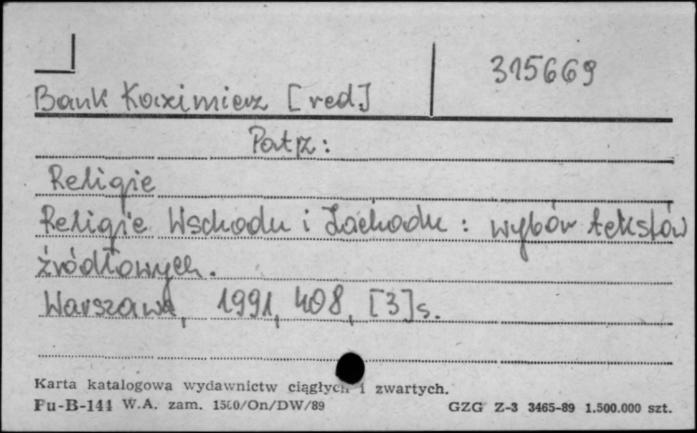 315669
Bank Kazimierz [red]
Patrz:
Religie
Religie Wschodu i Zachodu : wybór tekstów
źródłowych.
Warszawa, 1991, 408, [3]s.
Karta katalogowa wydawnictw ciągłych i zwartych.
Pu-B-144 W.A. zam. 1500/On/DW/89 GZG Z-3 3465-89 1.500.000 szt.